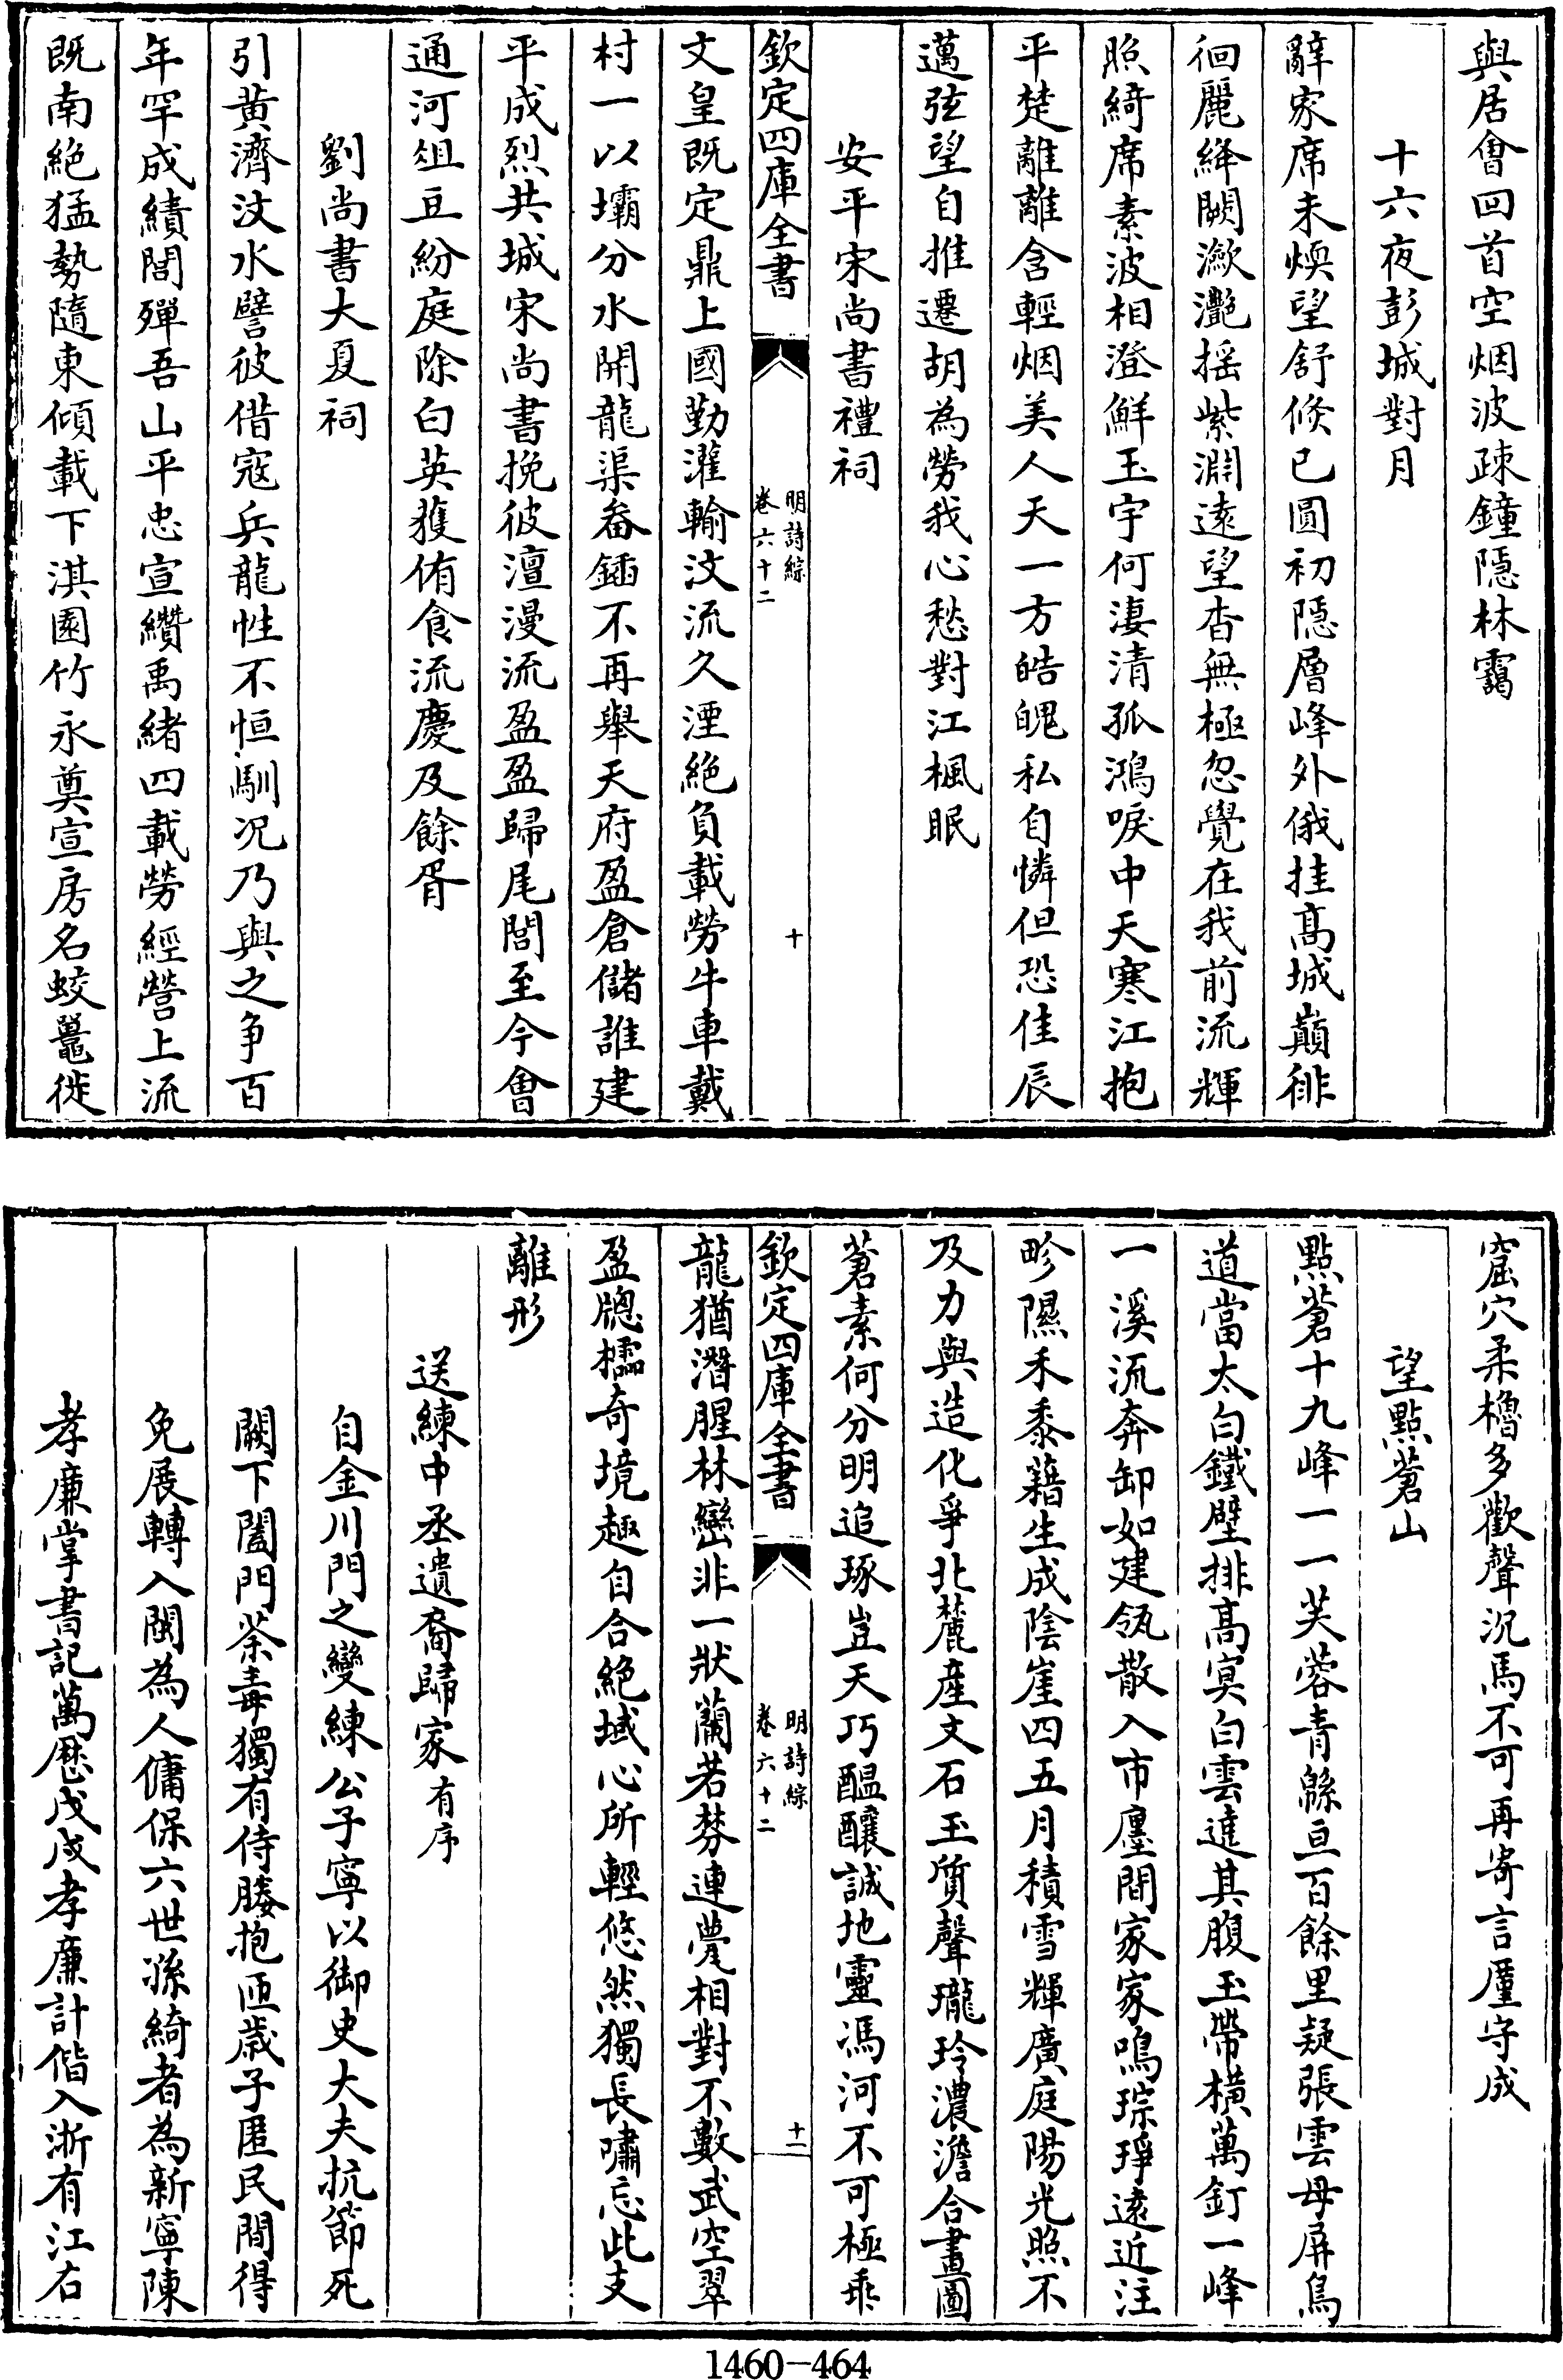 與居會回首空烟波疎鐘隱林靄
十六夜彭城對月
辭家席未煥望舒倐已圓初隱層峰外俄挂髙城巔徘
徊麗絳闕瀲灔揺紫淵逺望杳無極忽覺在我前流輝
照綺席素波相澄鮮玉宇何淒清孤鴻唳中天寒江抱
平楚離離含輕烟美人天一方皓魄私自憐但恐佳辰
邁弦望自推遷胡為勞我心愁對江楓眠
安平宋尚書禮祠
欽定四庫全書
明詩綜
卷六十二
十
文皇既定鼎上國勤灌輸汶流久湮絶負載勞牛車戴
村一以壩分水開龍渠畚鍤不再舉天府盈倉儲誰建
平成烈共城宋尚書挽彼澶漫流盈盈歸尾閭至今會
通河俎豆紛庭除白英獲侑食流慶及餘胥
劉尚書大夏祠
引黄濟汶水譬彼借寇兵龍性不恒馴况乃與之争百
年罕成績閭殫吾山平忠宣纘禹緒四載勞經營上流
既南絶猛勢隨東傾載下淇園竹永奠宣房名蛟鼉徙
窟穴柔櫓多歡聲沉馬不可再寄言廑守成
望點蒼山
點蒼十九峰一一芙蓉青緜亘百餘里疑張雲母屏鳥
道當太白鐵壁排高冥白雲遶其腹玉帶橫萬釘一峰
一溪流奔卸如建瓴散入市廛間家家鳴琮琤逺近注
畛隰禾黍藉生成陰崖四五月積雪輝廣庭陽光照不
及力與造化爭北麓産文石玉質聲瓏玲濃澹合畫圖
蒼素何分明追琢豈天巧醖釀誠地靈馮河不可極乖
欽定四庫全書
明詩綜
卷六十二
十一
龍猶潛腥林巒非一狀蘭若棼連甍相對不數武空翠
盈牕櫺奇境趣自合絶域心所輕悠然獨長嘯忘此支
離形
送練中丞遺裔歸家有序
自金川門之變練公子寧以御史大夫抗節死
闕下闔門荼毒獨有侍媵抱匝歲子匿民間得
免展轉入閩為人傭保六世孫綺者為新寧陳
孝廉掌書記萬厯戊戌孝廉計偕入浙有江右
1460-464